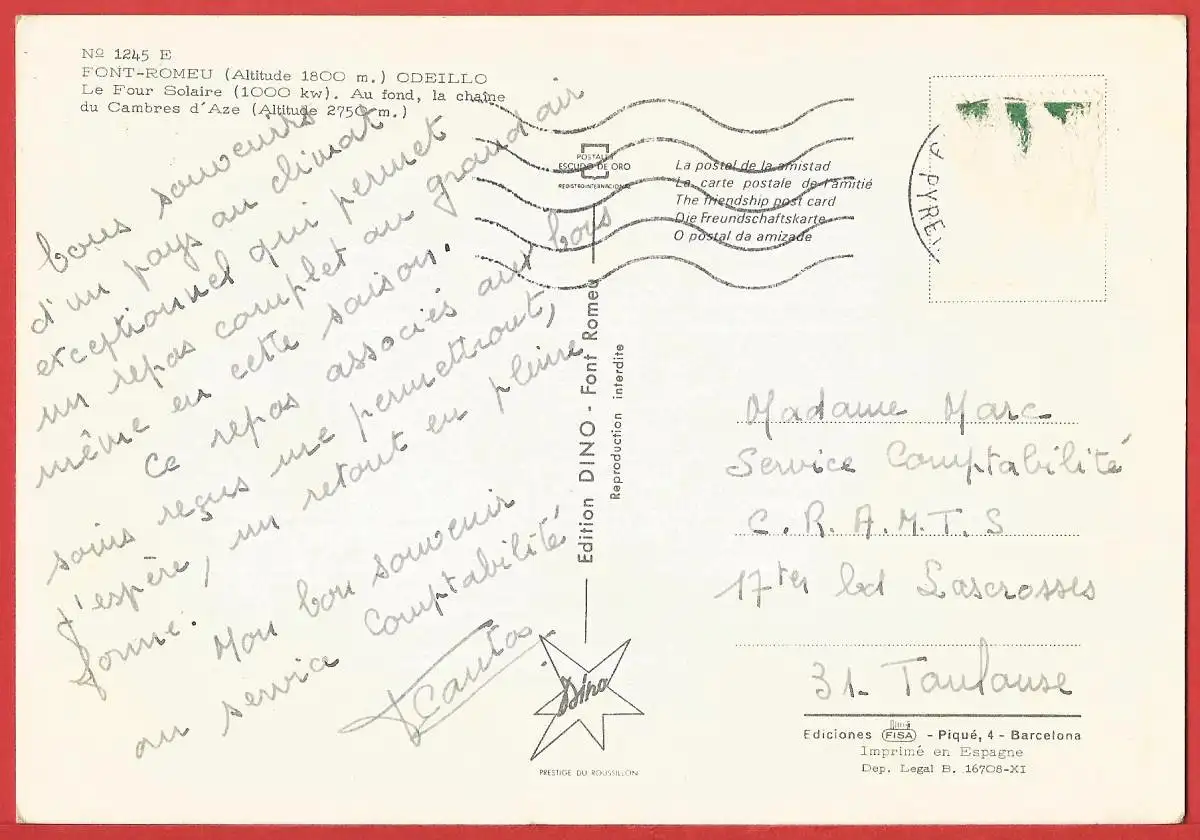 Nº 1245 E
FONT-ROMEU (Altitude 1800 m.) ODEILLO
Le Four Solaire (1000 kw). Au fond, la chaîne
du Cambres d'Aze (Altitude 2750 m.)
bons souvenirs
d'un pays au climat
exceptionnel qui permet
un repos complet au grand air
même en cette saison.
Ce repos associés aux bons
soins reçus me permettront,
j'espère, un retour en pleine
forme.
Mon bon souvenir
au service Comptabilité
POSTALES
ESCUDO DE ORO
REGISTRO INTERNACIONAL
La postal de la amistad
La carte postale de l'amitié
The friendship post card
Die Freundschaftskarte
O postal da amizade
PYRE
Edition DINO - Font Romeu
Reproduction interdite
Madame Marc
Service Comptabilité
C.R.A.M.T.S
17ter bd Lascrosses
31- Toulouse
Dino
PRESTIGE DU ROUSSILLON
Ediciones FISA - Piqué, 4 - Barcelona
Imprimé en Espagne
Dep. Legal B. 16708-XI